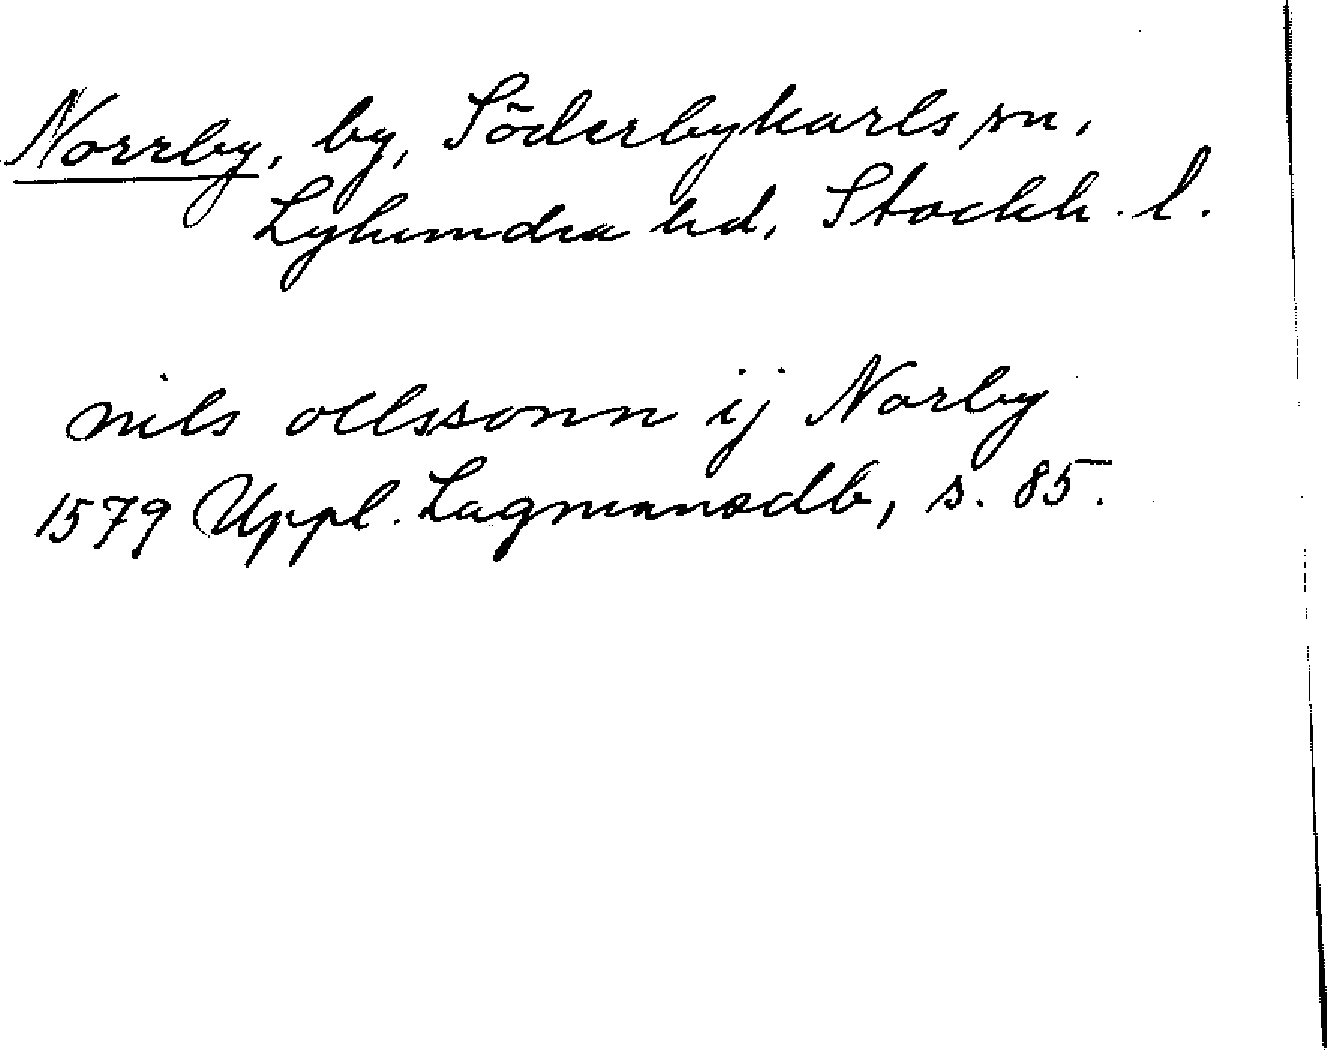 Norrby, by, Söderbykarls sn,
Lyhundra hd, Stockh. l.
nils ollssonn ij Norby
1579 Uppl. Lagmansdb, s. 85.